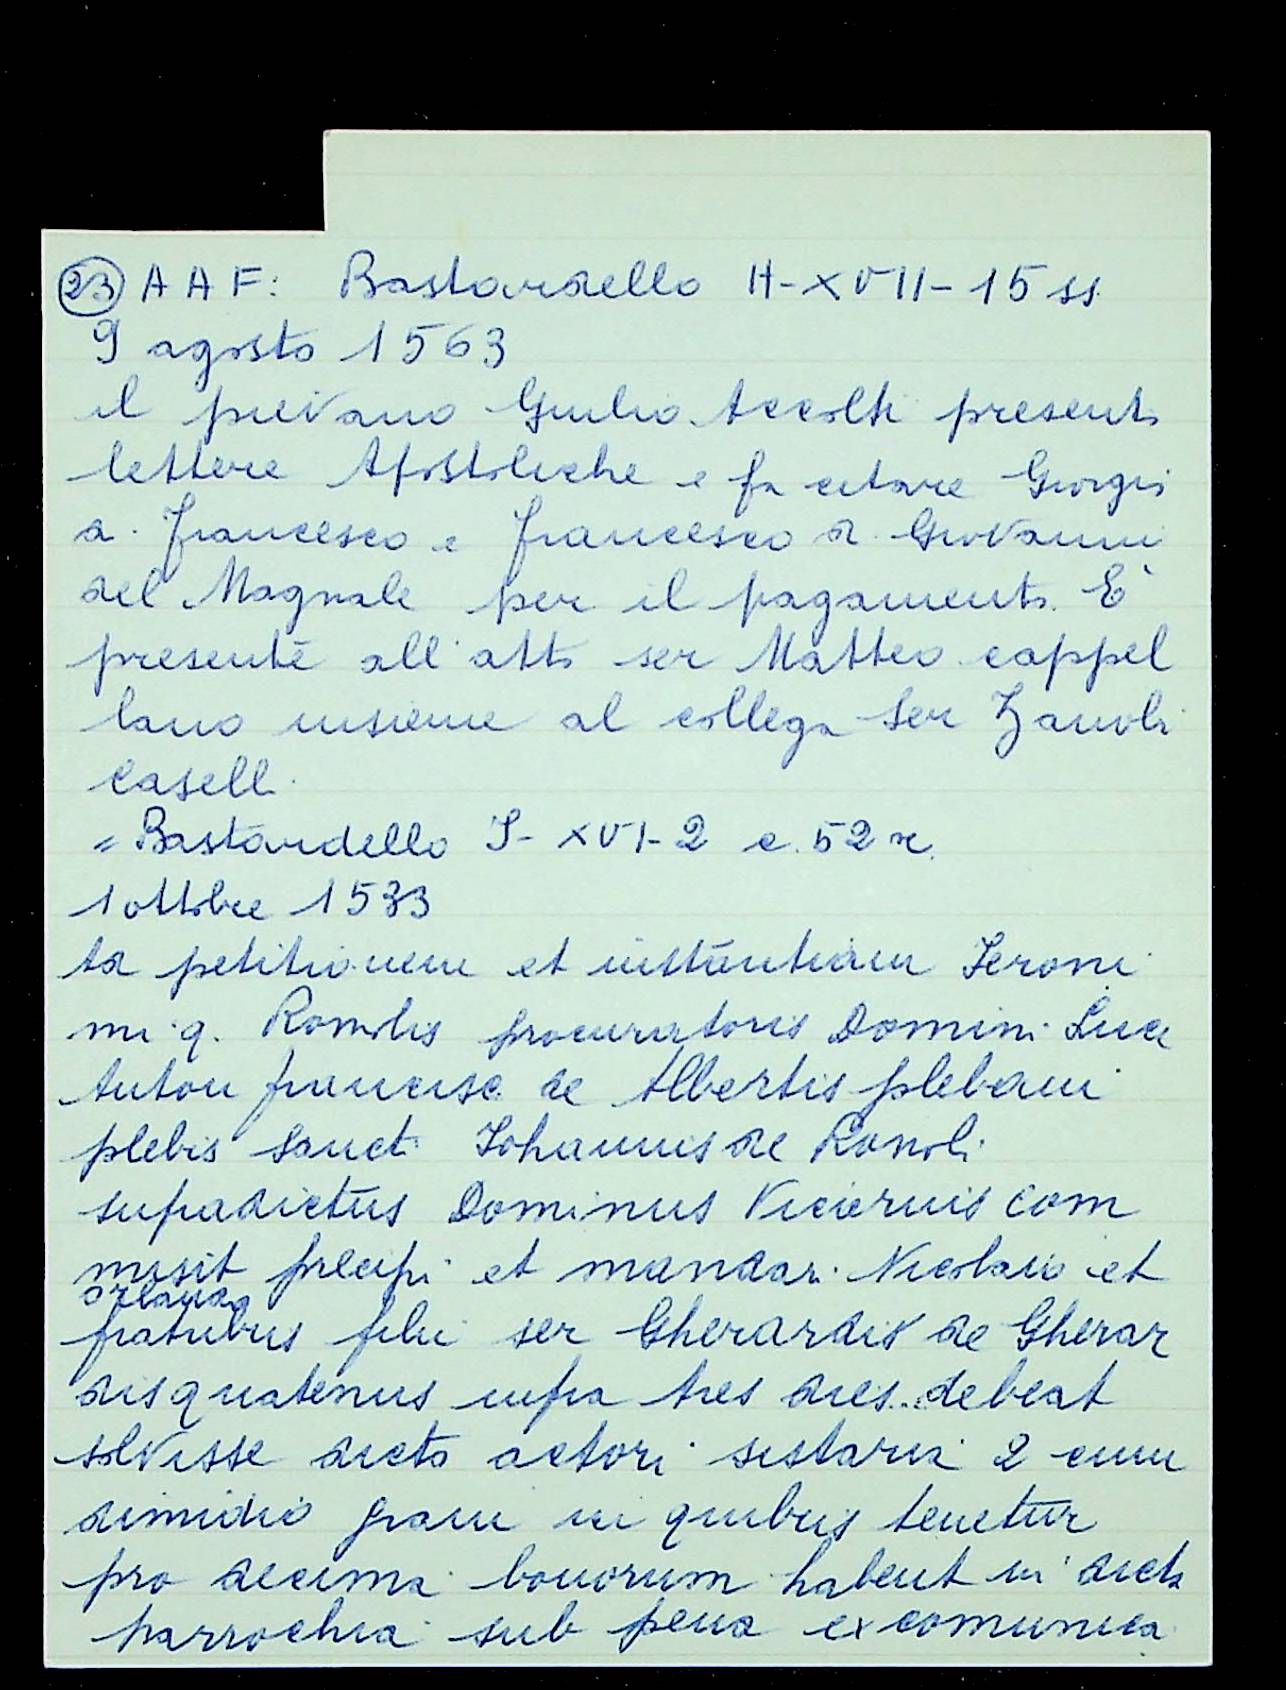 23 AAF: Bastardello H-XVII-15 ss.
9 agosto 1563
il pievano Giulio Accolti presenta
lettere Apostoliche e fa citare Giorgio
d. Francesco e Francesco d. Giovanni
del Magnale per il pagamento. È
presente all'atto ser Matteo cappel
lano insieme al collega ser Zanobi
Caselli.
= Bastardello I-XVI-2 c. 52 r.
1 ottobre 1533
Ad petitionem et instantiam Ieroni
mi q. Romolis procuratoris Domini Luce
Anton francisc. de Albertis plebani
plebis Sancti Iohannis de Romoli
supradictus Dominus Vicierius com
misit precipi et mandari Nicolaio et
Orlando
fratribus filii ser Gherardis de Gherar
dis quatenus infra tres dies debeat
solvisse dicto actori sistaria 2 cum
dimidio grani in quibus tenetur
pro decima bonorum habent in dicta
parrochia sub pena excomunica